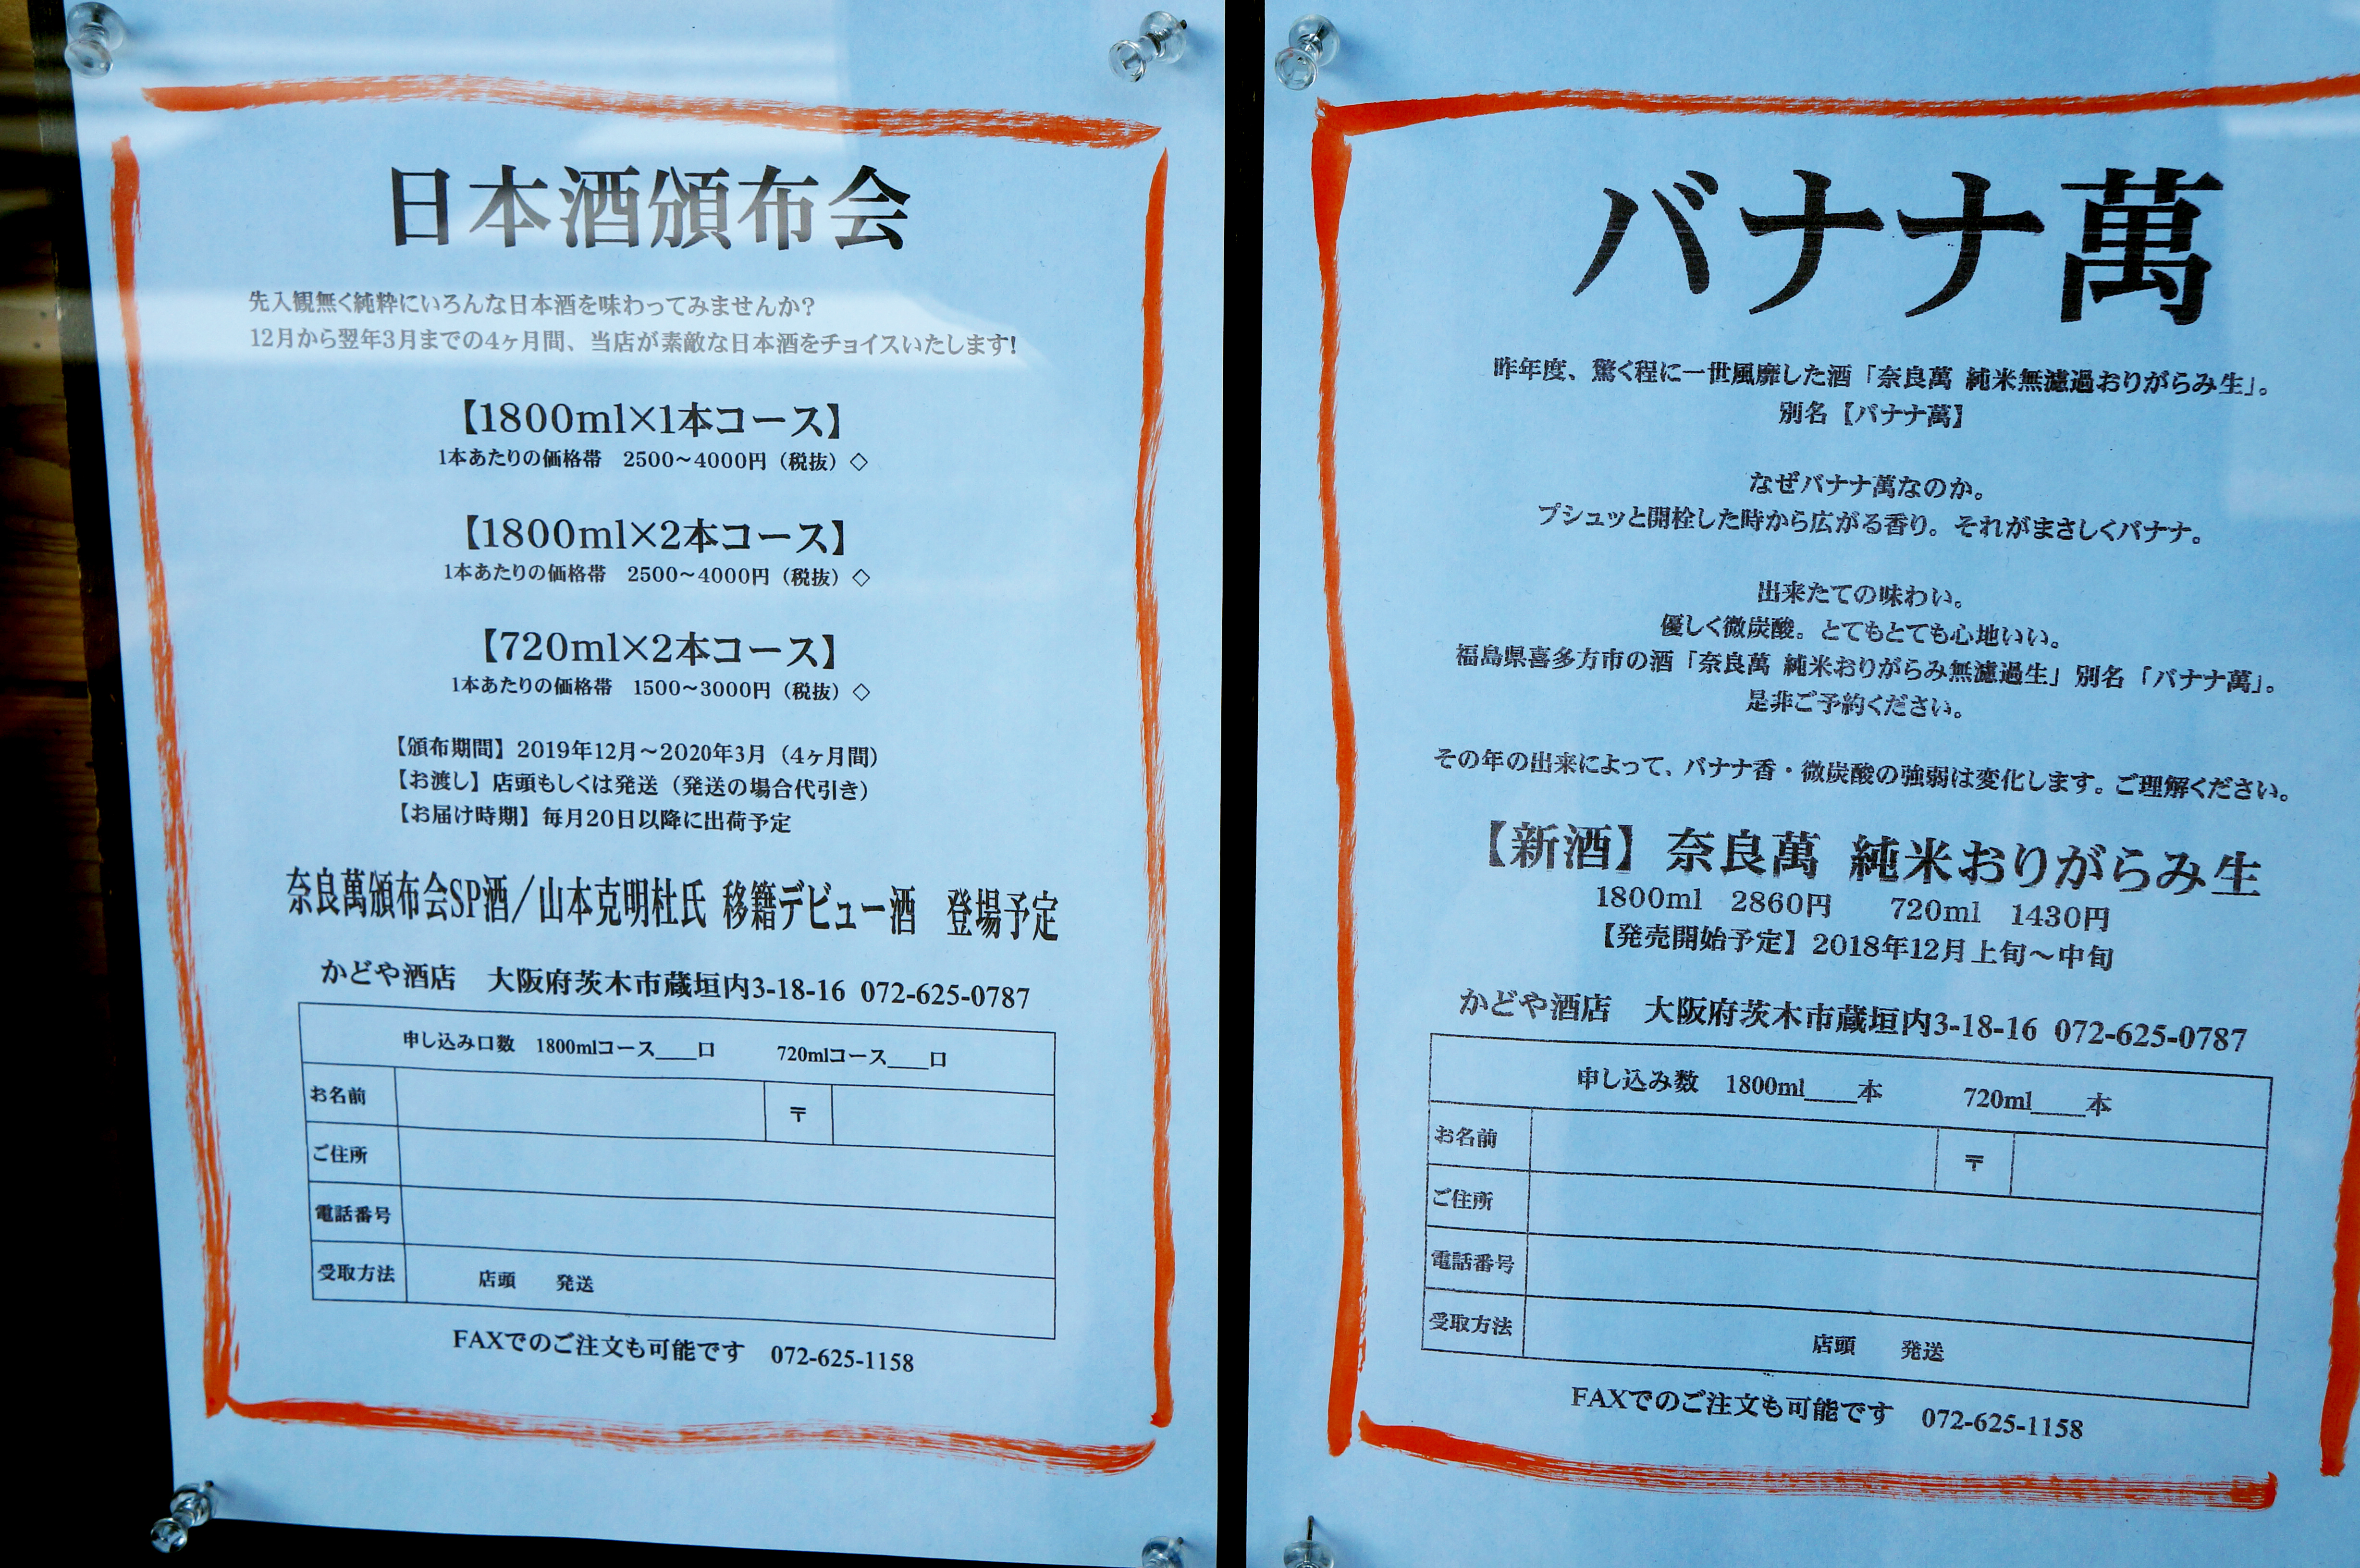 日本酒頒布会
先入観無く純粋にいろんな日本酒を味わってみませんか?
12月から翌年3月までの4ヶ月間、当店が素敵な日本酒をチョイスいたします!
【1800ml×1本コース】
1本あたりの価格帯 2500~4000円（税抜）◇
【1800ml×2本コース】
1本あたりの価格帯 2500~4000円（税抜）◇
【720ml×2本コース】
1本あたりの価格帯 1500~3000円（税抜）◇
【頒布期間】2019年12月～2020年3月（4ヶ月間）
【お渡し】店頭もしくは発送（発送の場合代引き）
【お届け時期】毎月20日以降に出荷予定
奈良萬頒布会SP酒／山本克明杜氏 移籍デビュー酒 登場予定
かどや酒店 大阪府茨木市蔵垣内3-18-16 072-625-0787
申し込み口数 1800mlコース____口 720mlコース____口
お名前 〒
ご住所
電話番号
受取方法 店頭 発送
FAXでのご注文も可能です 072-625-1158
バナナ萬
昨年度、驚く程に一世風靡した酒「奈良萬 純米無濾過おりがらみ生」。
別名【バナナ萬】
なぜバナナ萬なのか。
プシュッと開栓した時から広がる香り。それがまさしくバナナ。
出来たての味わい。
優しく微炭酸。とてもとても心地いい。
福島県喜多方市の酒「奈良萬 純米おりがらみ無濾過生」別名「バナナ萬」。
是非ご予約ください。
その年の出来によって、バナナ香・微炭酸の強弱は変化します。ご理解ください。
【新酒】奈良萬 純米おりがらみ生
1800ml 2860円 720ml 1430円
【発売開始予定】2018年12月上旬～中旬
かどや酒店 大阪府茨木市蔵垣内3-18-16 072-625-0787
申し込み数 1800ml____本 720ml____本
お名前 〒
ご住所
電話番号
受取方法 店頭 発送
FAXでのご注文も可能です 072-625-1158